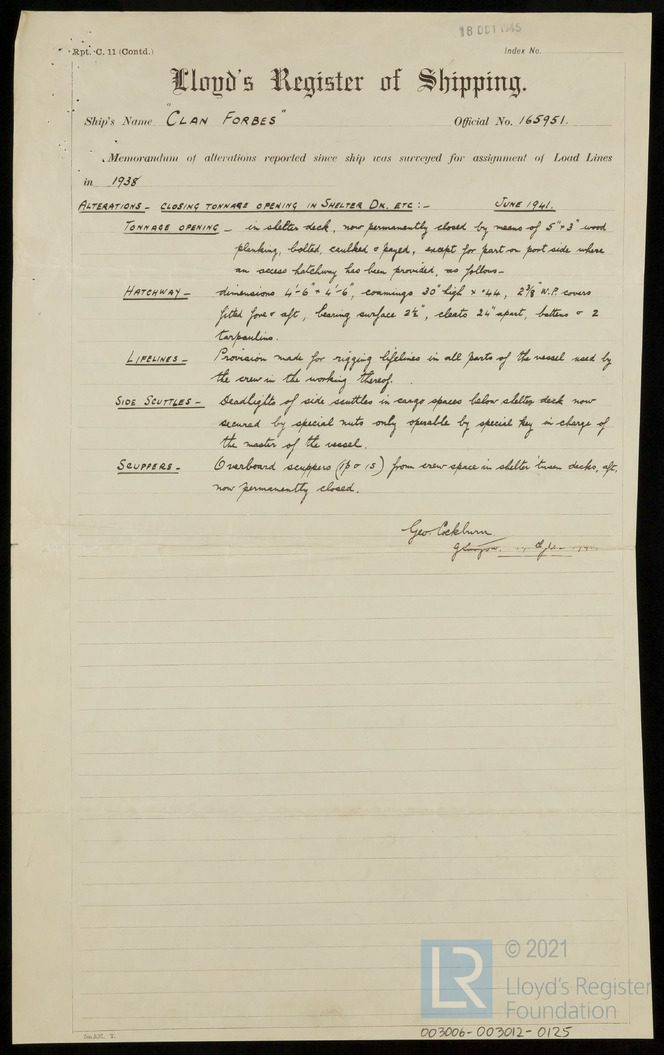 18 OCT 1945
Rpt. C. 11 (Contd.)
Index No.
Lloyd's Register of Shipping.
Ship's Name "CLAN FORBES"
Official No. 165951.
Memorandum of alterations reported since ship was surveyed for assignment of Load Lines
in 1938
ALTERATIONS - CLOSING TONNAGE OPENING IN SHELTER DK. ETC :- JUNE 1941.
TONNAGE OPENING - in shelter deck, now permanently closed by means of 5" × 3" wood
planking, bolted, caulked & payed, except for part on port side where
an access hatchway has been provided, as follows -
HATCHWAY - dimensions 4'-6" × 4'-6", coamings 30" high × .44, 2 3/8" W.P. covers
fitted fore & aft, bearing surface 2½", cleats 24" apart, battens & 2
tarpaulins.
LIFELINES - Provision made for rigging lifelines in all parts of the vessel used by
the crew in the working thereof.
SIDE SCUTTLES - Deadlights of side scuttles in cargo spaces below shelter deck now
secured by special nuts only operable by special key in charge of
the master of the vessel.
SCUPPERS - Overboard scuppers (1p & 1s) from crew space in shelter 'tween decks, aft,
now permanently closed.
Geo. Cockburn.
Glasgow.
LR
© 2021
Lloyd's Register
Foundation
003006-003012-0125